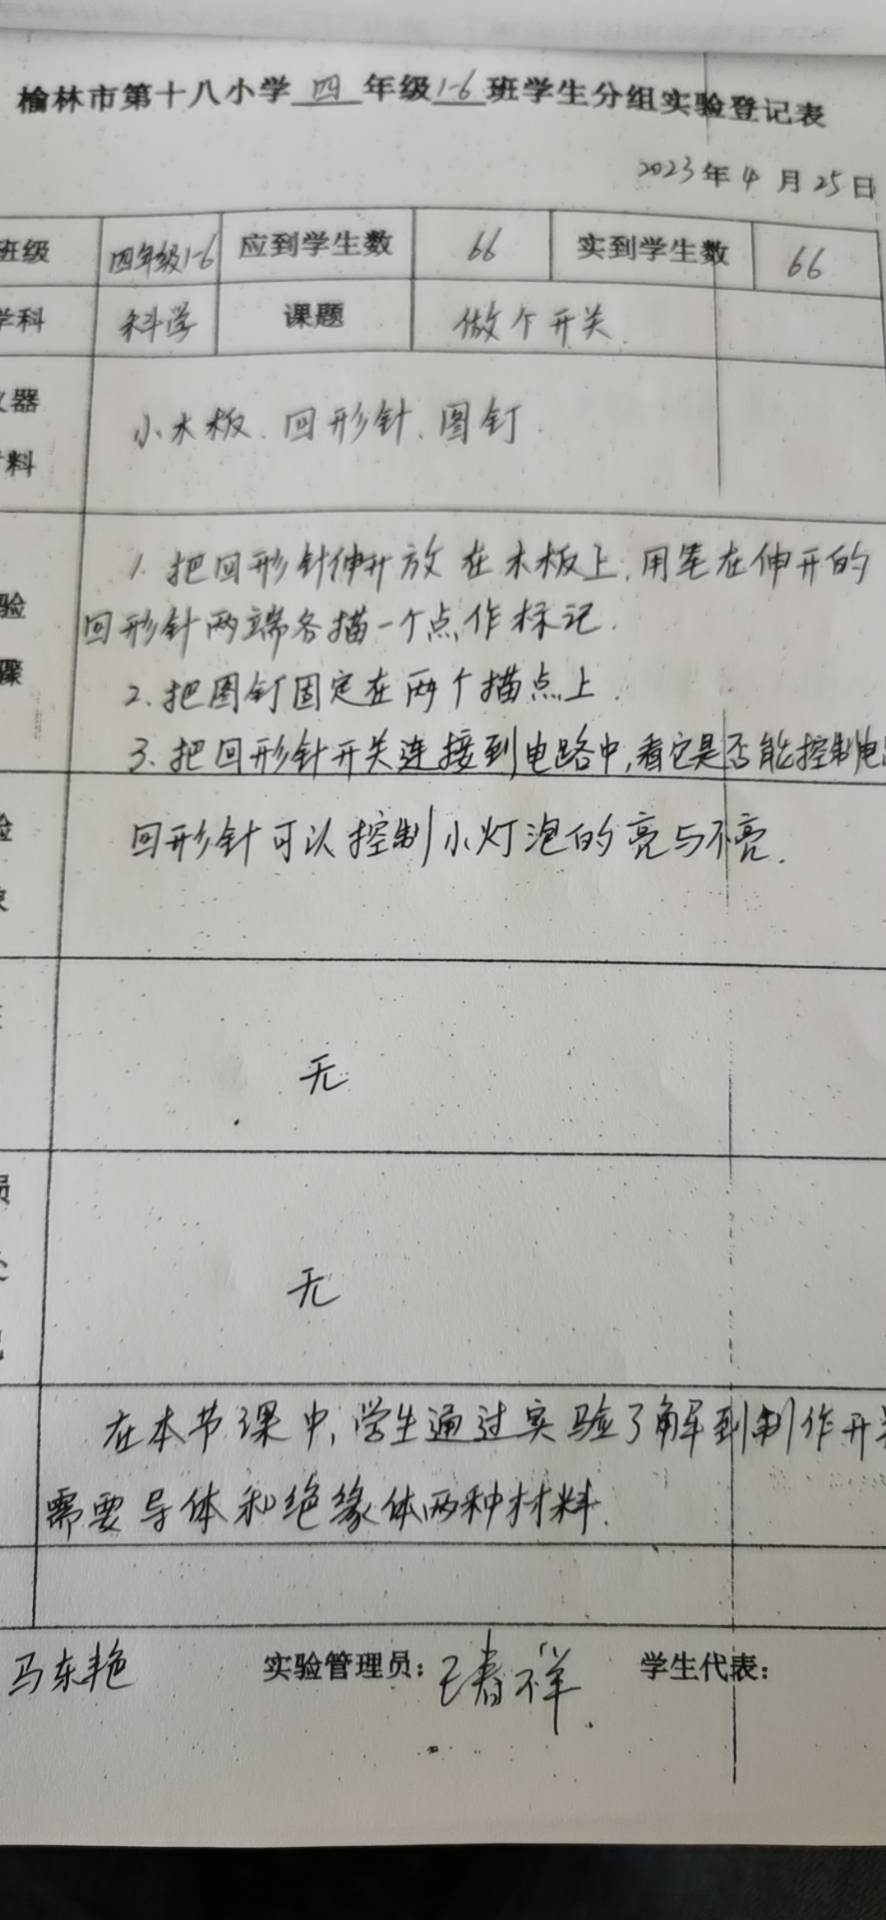 榆林市第十八小学四年级1-6班学生分组实验登记表
2023年4月25日
班级 四年级1-6 应到学生数 66 实到学生数 66
学科 科学 课题 做个开关
器 小木板、回形针、图钉.
料
1. 把回形针伸开放在木板上,用笔在伸开的
验 回形针两端各描一个点作标记.
骤 2. 把图钉固定在两个描点上.
3. 把回形针开关连接到电路中,看它是否能控制电
验 回形针可以控制小灯泡的亮与不亮.
无
无
在本节课中,学生通过实验了解到制作开关
需要导体和绝缘体两种材料.
马东艳 实验管理员: 王春祥 学生代表: